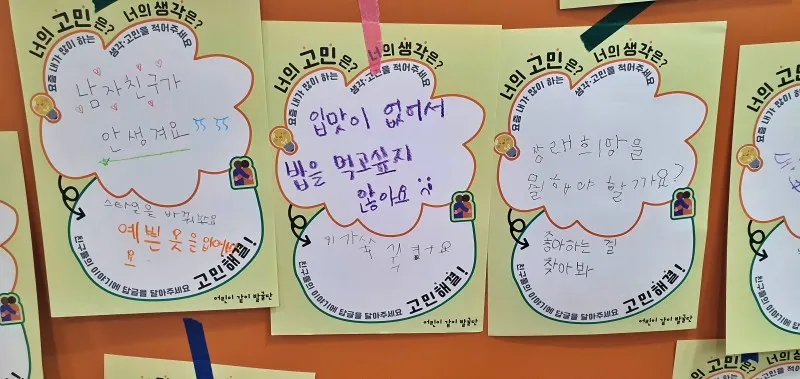 너의 고민은?
너의 생각은?
요즘 내가 많이 하는
생각·고민을 적어주세요
남자친구가
안생겨요 ㅠㅠ
스타일을 바꿔봐요
예쁜 옷을 입어
요
친구들의 이야기에 답글을 달아주세요
고민해결!
어린이 같이 발굴단
너의 고민은?
너의 생각은?
요즘 내가 많이 하는
생각·고민을 적어주세요
입맛이 없어서
밥을 먹고싶지
않아요
친구들의 이야기에 답글을 달아주세요
고민해결!
어린이 같이 발굴단
너의 고민은?
너의 생각은?
요즘 내가 많이 하는
생각·고민을 적어주세요
장래희망을
뭘해야 할까요?
좋아하는 걸
찾아봐
친구들의 이야기에 답글을 달아주세요
고민해결!
어린이 같이 발굴단
너의
요즘 내가 많이 하는
너의 고민은?
너의 생각은?